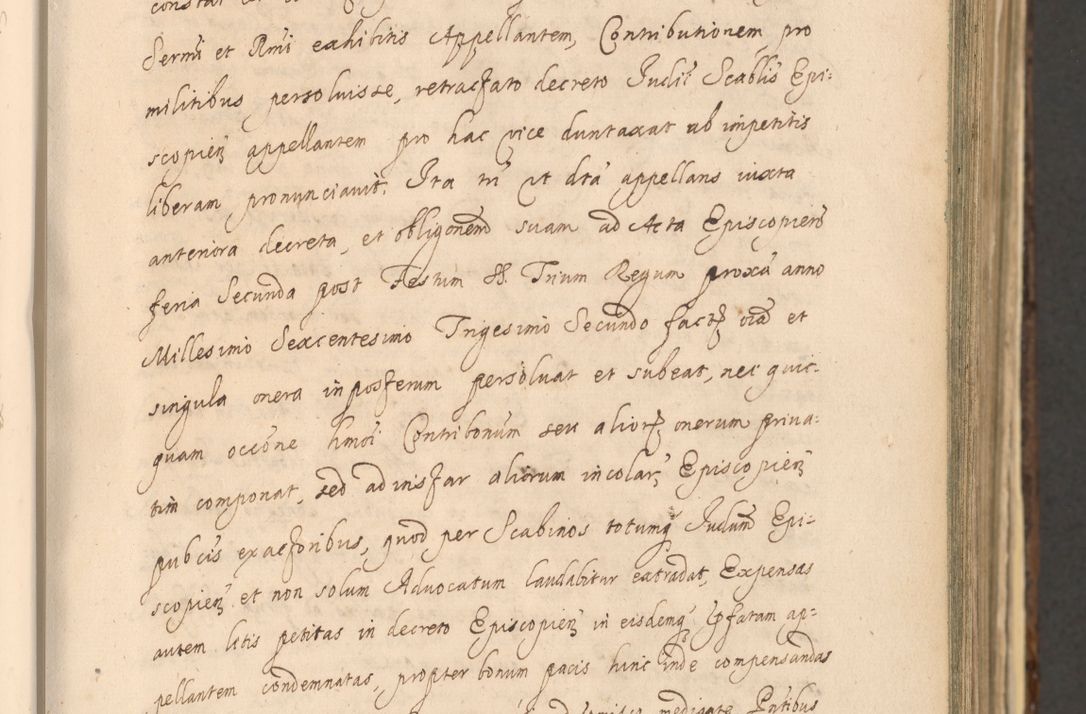 Sermi et Rmi exhibitis Appellantem, Contributionem pro
militibus persoluisse, retractato decreto Judií Scablis Epi:
scopien appellantem pro hac vice duntaxat ab impetitis
liberam pronunciavit. Ita tn ut dta appellans iuxta
anteriora decreta, et obligonem suam ad Acta Episcopien
feria Secunda post Festum SS. Trium Regum proxa anno
Millesimo Sexcentesimo Trigesimo Secundo fact oia et
singula onera in posterum persoluat et subeat, nec quic:
quam occone hmoi Contribonum seu alior onerum priua:
tim componat, sed ad instar aliorum incolar Episcopien
pubcis exactoribus, quod per Scabinos totumq Judium Epi:
scopien et non solum Advocatum laudabitur extradat, Expensas
autem litis petitas in decreto Episcopien in eisdemq ipsatam ap:
pellantem condemnatas, propter bonum pacis hinc inde compensandas
mediante Pntibus